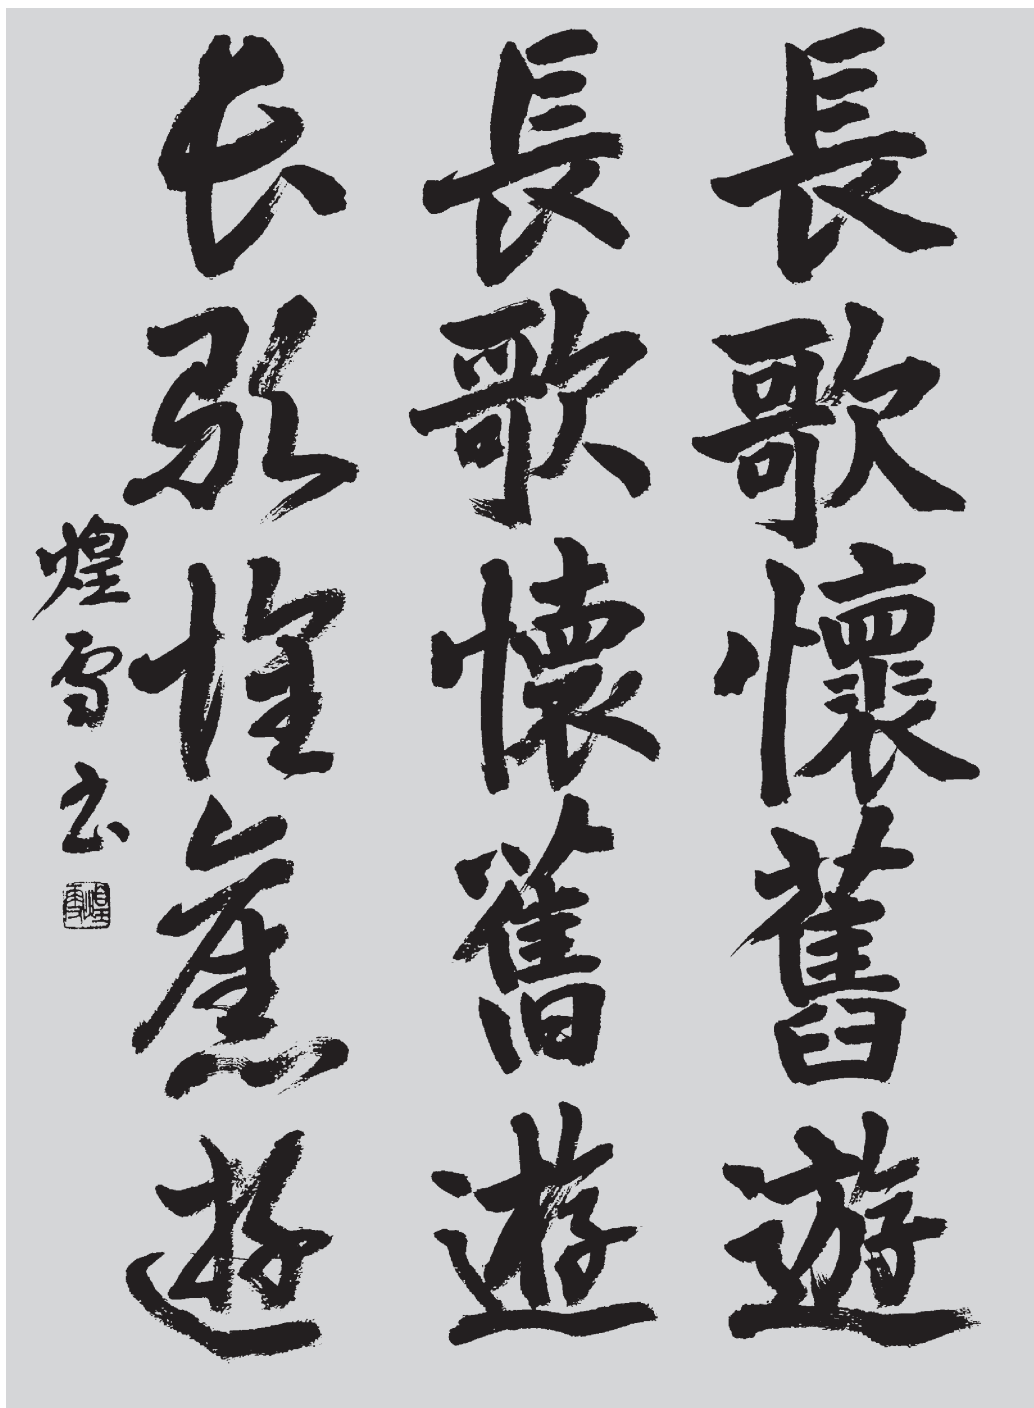 長歌懷舊遊
長歌懷舊遊
長歌懷舊遊
煌雪书
煌雪